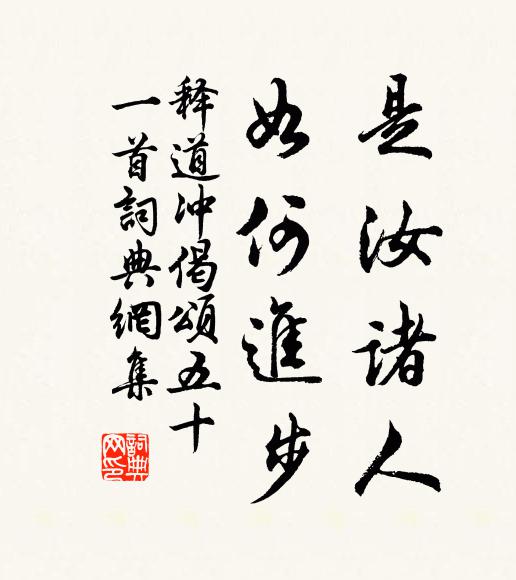 是汝诸人
如何進步
释道冲偈頌五十
一首詞典網集
詞典
网印